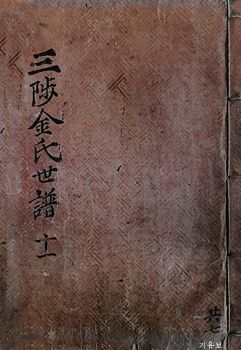 三陟金氏世譜 十一
기유보